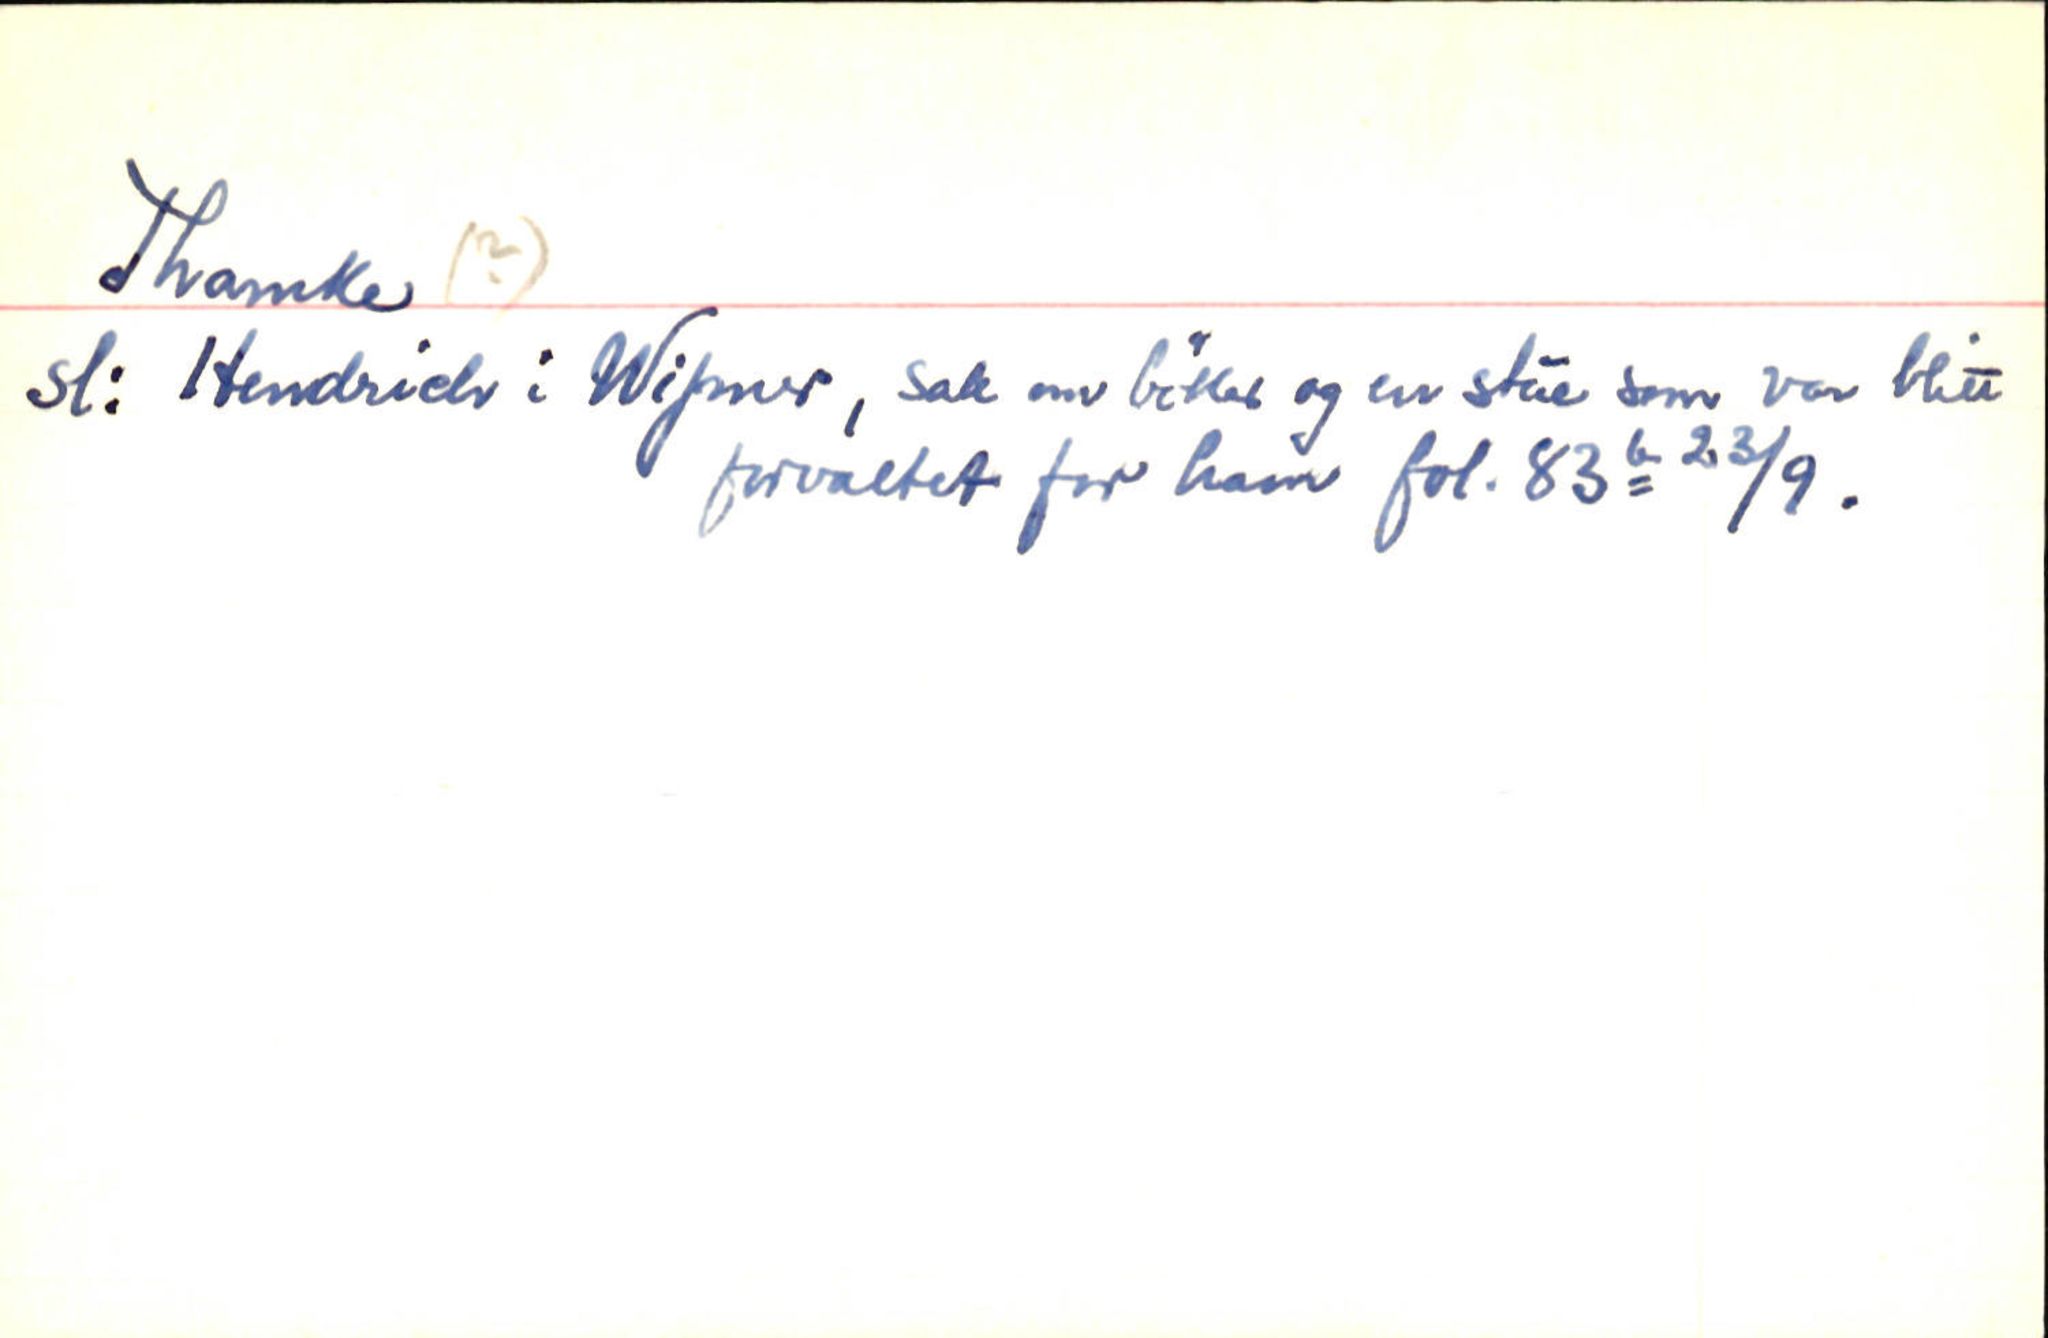 Thamke (?)
sl: Hendrich i Wißmer, sak om böker og en stue som var blitt
forvaltet for ham fol. 83b 23/9.